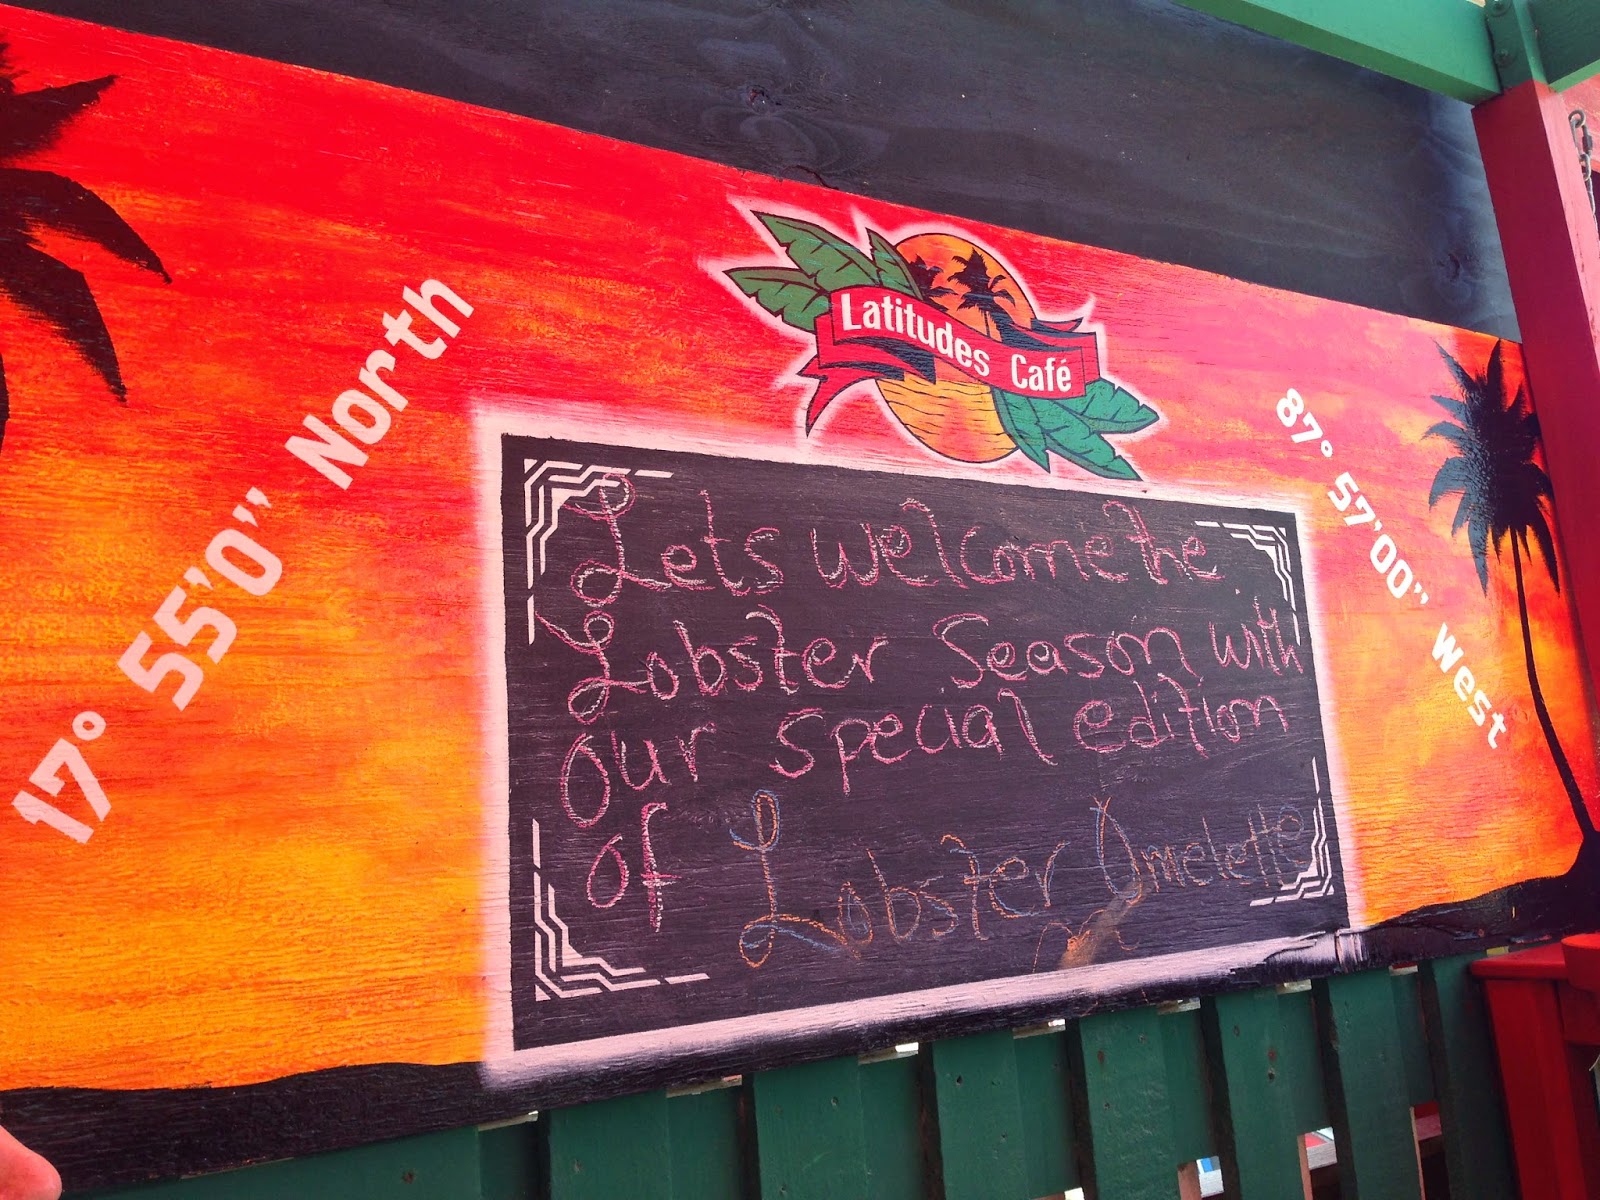 17° 55'0" North
Latitudes Café
87° 57'00" West
Lets welcome the
Lobster Season with
our special edition
of Lobster Omelette